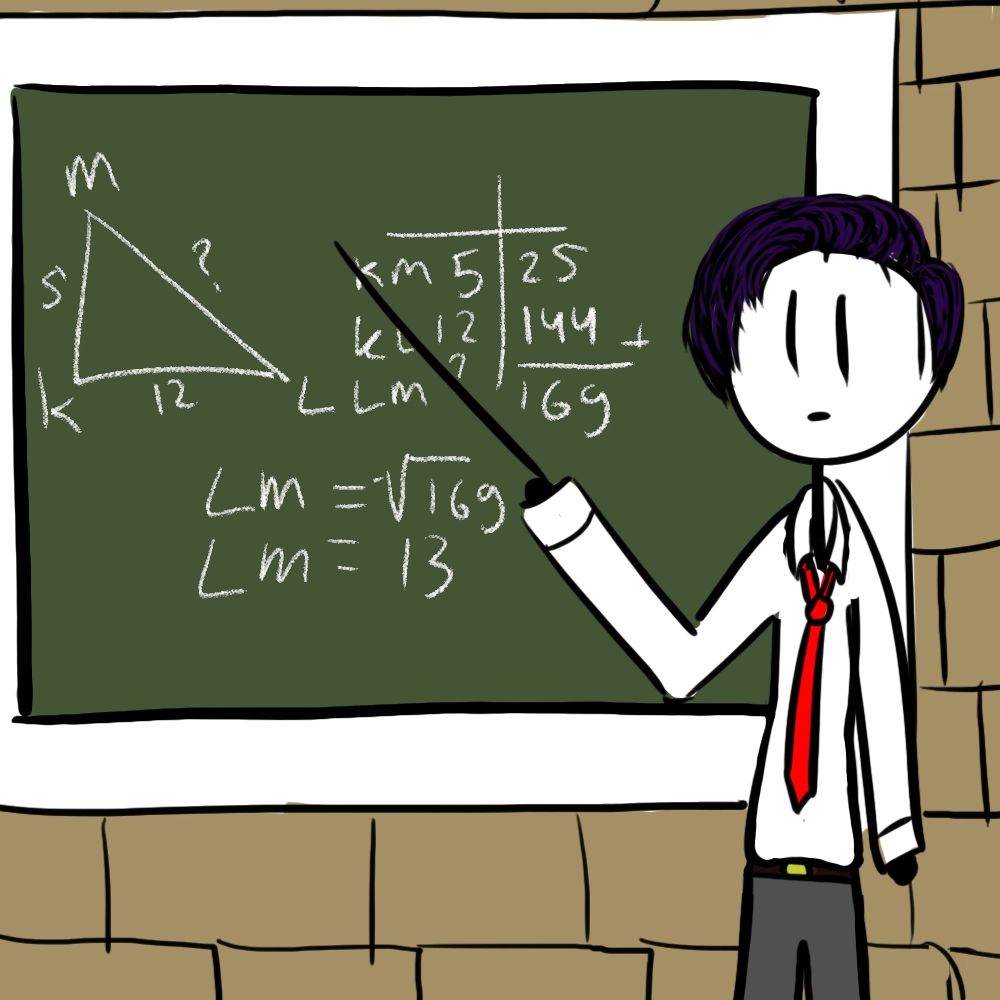 M
5
?
K
12
L
KM 5 25
KL 12 144 +
LM ? 169
LM = √169
LM = 13